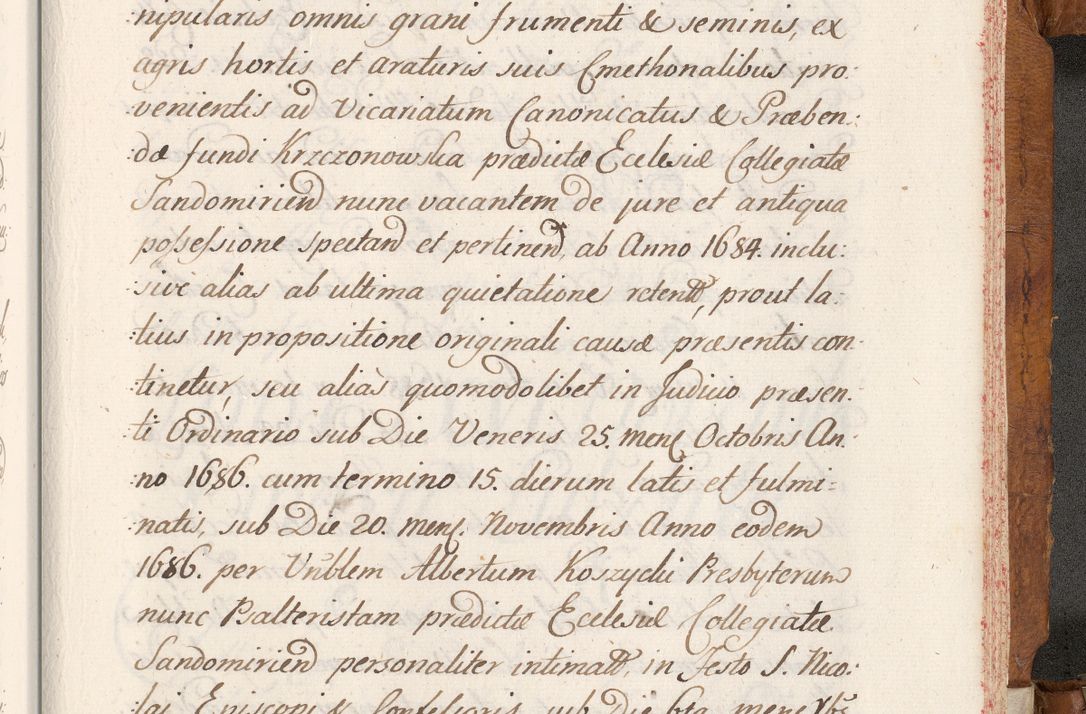 nipularis omnis grani frumenti & seminis, ex
agris hortis et araturis suis Cmethonalibus pro:
venientis ad Vicariatum Canonicatus & Præben:
:dæ fundi Krzczonowska prædictæ Ecclesiæ Collegiatæ
Sandomirien nunc vacantem de jure et antiqua
possessione spectand et pertinend, ab Anno 1684. inclu:
:sive alias ab ultima quietatione retent, prout la:
:tius in propositione originali causæ præsentis con:
:tinetur, seu aliàs quomodolibet in Judicio præsen:
:ti Ordinario sub Die Veneris 25. mens Octobris An:
:no 1686. cum termino 15. dierum latis et fulmi:
:natis, sub Die 20. mens. Novembris Anno eodem
1686. per Vnblem Albertum Koszycki Presbyterum
nunc Psalteristam prædictæ Ecclesiæ Collegiatæ
Sandomirien personaliter intimatt, in Festo S. Nico:
:lai Episcopi & Confessoris, sub Die 6ta mens Xbr